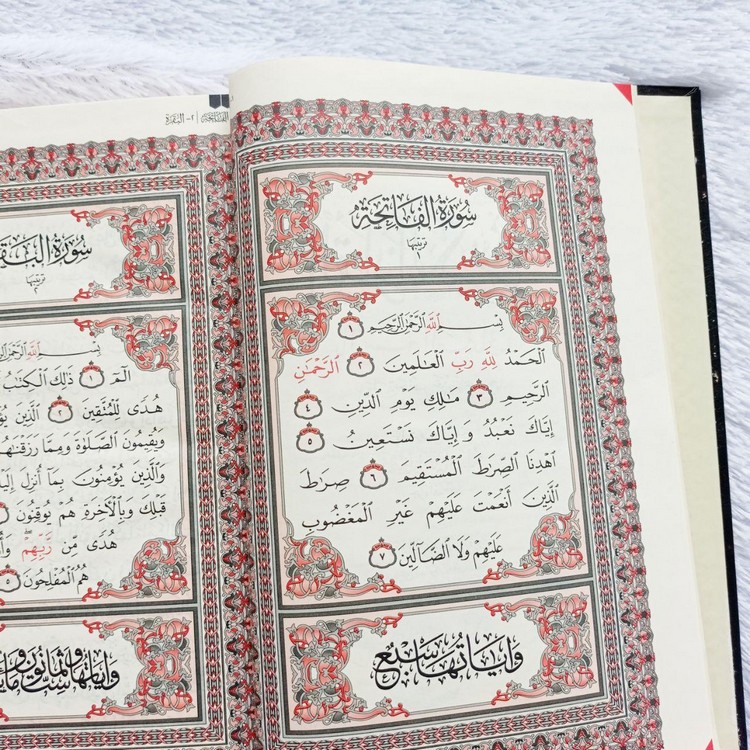 سُورَةُ الْفَاتِحَةِ
ترتيبها
١
بِسْمِ اللَّهِ الرَّحْمَٰنِ الرَّحِيمِ ١
الْحَمْدُ لِلَّهِ رَبِّ الْعَالَمِينَ ٢ الرَّحْمَٰنِ
الرَّحِيمِ ٣ مَالِكِ يَوْمِ الدِّينِ ٤
إِيَّاكَ نَعْبُدُ وَإِيَّاكَ نَسْتَعِينُ ٥
اهْدِنَا الصِّرَاطَ الْمُسْتَقِيمَ ٦ صِرَاطَ
الَّذِينَ أَنْعَمْتَ عَلَيْهِمْ غَيْرِ الْمَغْضُوبِ
عَلَيْهِمْ وَلَا الضَّالِّينَ ٧
وَآيَاتُهَا سَبْعٌ
٢- البقرة
سُورَةُ
ترتيبها
٢
بِسْمِ اللَّهِ الرَّحْمَٰنِ الرَّحِيمِ
الم ١ ذَٰلِكَ الْكِتَابُ
هُدًى لِلْمُتَّقِينَ ٢ الَّذِينَ
وَيُقِيمُونَ الصَّلَاةَ وَمِمَّا رَزَقْنَاهُمْ
وَالَّذِينَ يُؤْمِنُونَ بِمَا أُنْزِلَ
قَبْلِكَ وَبِالْآخِرَةِ هُمْ يُوقِنُونَ
هُدًى مِنْ رَبِّهِمْ
هُمُ الْمُفْلِحُونَ ٥